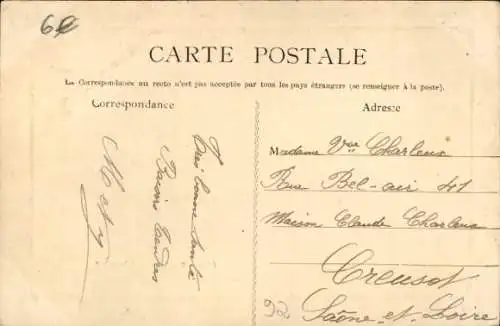 6e
CARTE POSTALE
La Correspondance au recto n'est pas acceptée par tous les pays étrangers (se renseigner à la poste).
Correspondance
Adresse
Très bonne Santé
Baisers tendres
Madame Vve Charleux
Rue Bel-air 41
Maison Claude Charleux
Creusot
Saône-et-Loire
92